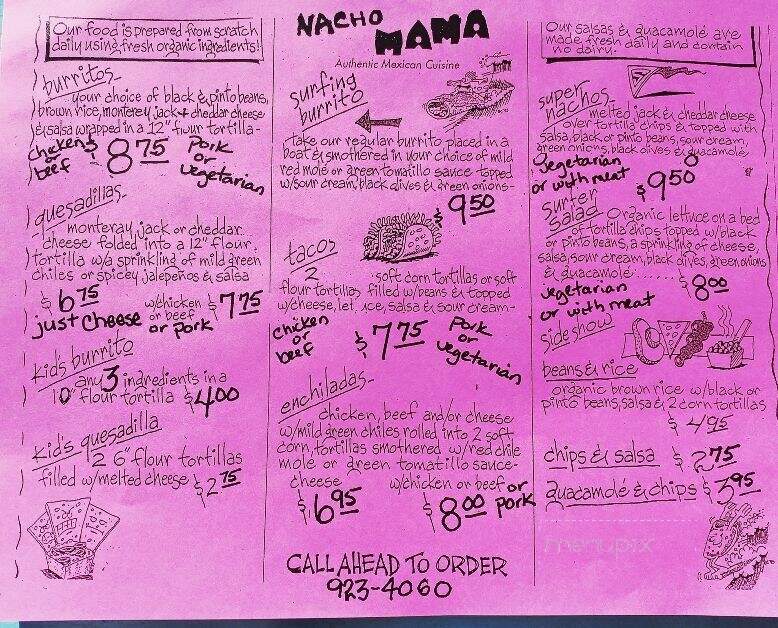 Our food is prepared from scratch
daily using fresh organic ingredients!
burritos-
your choice of black & pinto beans,
brown rice, monterey jack & cheddar cheese
& salsa wrapped in a 12" flour tortilla-
chicken or beef $8.75 Pork or vegetarian
quesadillas-
monteray jack or cheddar
cheese folded into a 12" flour
tortilla w/a sprinkling of mild green
chiles or spicey jalepeños & salsa
$6.75 just cheese w/chicken or beef or pork $7.75
kid's burrito
any 3 ingredients in a
10" flour tortilla $4.00
kid's quesadilla
2 6" flour tortillas
filled w/melted cheese $2.75
NACHO MAMA
Authentic Mexican Cuisine
surfing
burrito
take our regular burrito placed in a
boat & smothered in your choice of mild
red mole or green tomatillo sauce-topped
w/sour cream, black olives & green onions-
$9.50
tacos
2 soft corn tortillas or soft
flour tortillas filled w/beans & topped
w/cheese, lettuce, salsa & sour cream-
chicken or beef $7.75 Pork or vegetarian
enchiladas-
chicken, beef and/or cheese
w/mild green chiles rolled into 2 soft
corn tortillas smothered w/red chile
mole or green tomatillo sauce-
cheese $6.95 w/chicken or beef or pork $8.00
CALL AHEAD TO ORDER
923-4060
Our salsas & guacamole are
made fresh daily and contain
no dairy.
super
nachos-
melted jack & cheddar cheese
over tortilla chips & topped with
salsa, black or pinto beans, sour cream,
green onions, black olives & guacamolé
vegetarian
or with meat $9.50
surfer
salad
Organic lettuce on a bed
of tortilla chips topped w/black
or pinto beans, a sprinkling of cheese,
salsa, sour cream, black olives, green onions
& guacamolé.......
vegetarian
or with meat $8.00
side show
beans & rice
organic brown rice w/black or
pinto beans, salsa & 2 corn tortillas
$4.95
chips & salsa $2.75
guacamolé & chips $3.95
menupix